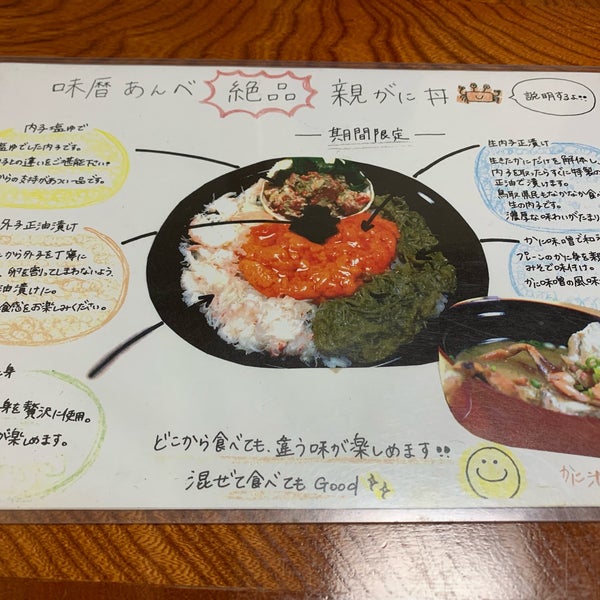 味暦あんべ 絶品 親がに丼
説明するよ!!
期間限定
内子塩ゆで
塩ゆでした内子です。
子との違いをご堪能下さい。
からの支持があつい一品です。
外子正油漬け
から外子を丁寧に
、卵を害してしまわないよう、
油漬けに。
食感をお楽しみください。
身
身を贅沢に使用。
が楽しめます。
生内子正漬け
生きたかにだけを解体し、
内子を取ったらすぐに特製の
正油で漬けます。
鳥取県民もなかなか食べ
生の内子です。
濃厚な味わいがたまり
かに味噌で和え
プレーンのかに身を
みそで味付け。
かに味噌の風味
どこから食べても、違う味が楽しめます!!
混ぜて食べても Good
かに汁